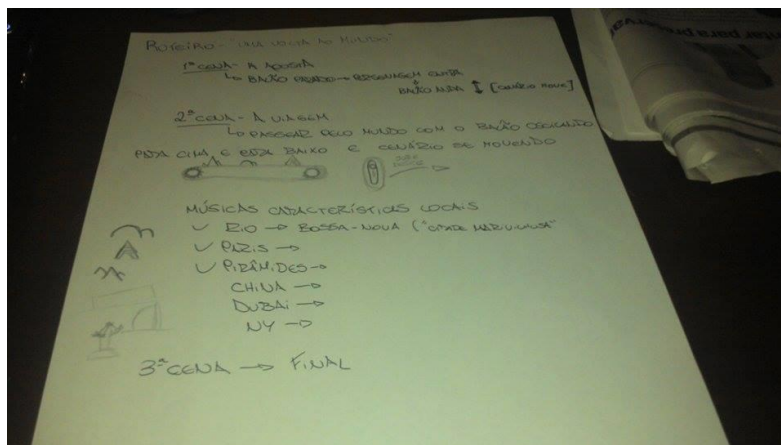 ROTEIRO - "UMA VOLTA AO MUNDO"
1ª CENA - A APOSTA
↳ BALÃO PARADO → PERSONAGEM ENTRA
BALÃO ↕ [CENÁRIO MOVE]
2ª CENA - A VIAGEM
↳ PASSEAR PELO MUNDO COM O BALÃO OSCILANDO
PARA CIMA E PARA BAIXO E CENÁRIO SE MOVENDO
MÚSICAS CARACTERÍSTICAS LOCAIS
✓ RIO → BOSSA-NOVA ("CIDADE MARAVILHOSA"
✓ PARIS →
✓ PIRÂMIDES →
CHINA →
DUBAI →
NY →
3ª CENA → FINAL
ntar para preserva